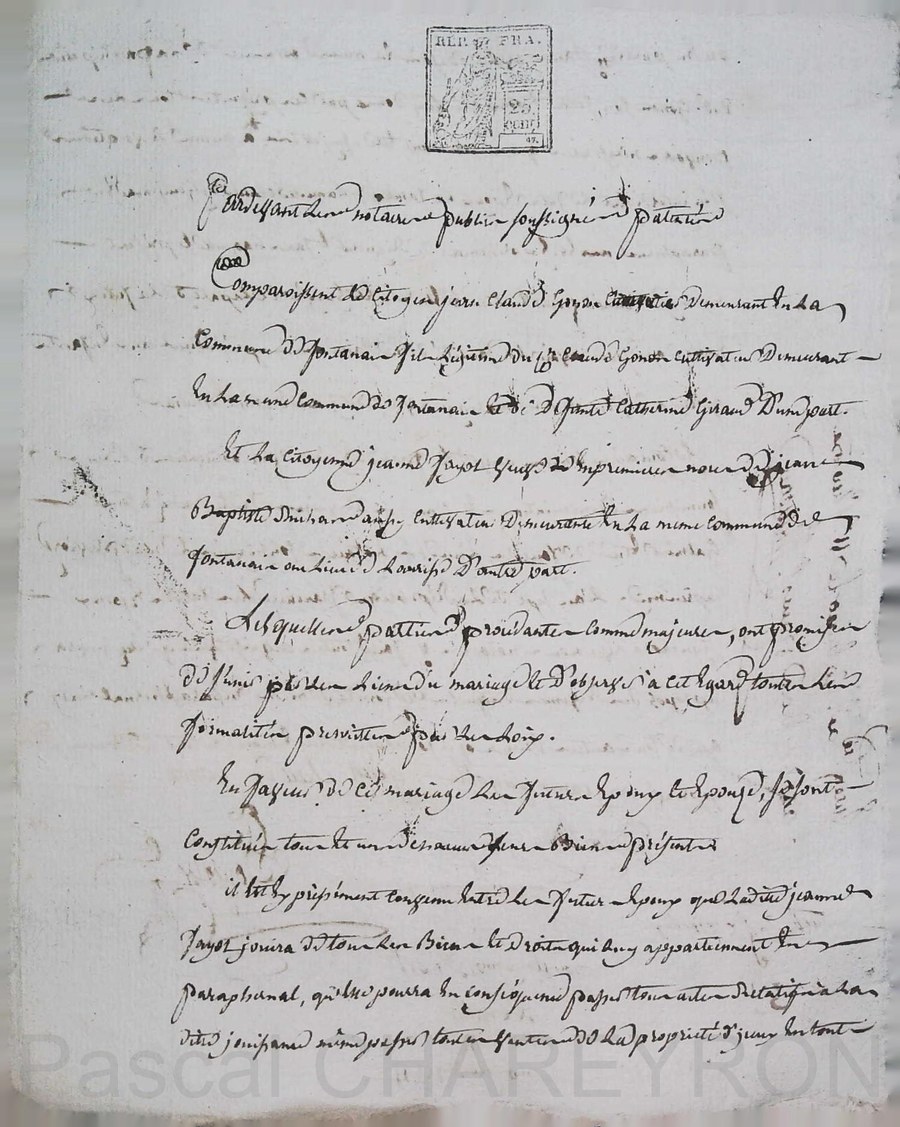 REP. FRA.
25
CENT
Pardevant les notaires publics soussignés patentés
Comparoissent le Citoyen jean Claude Gonon demeurant en la
Commune de fontanais fils légitime du Cn Claude Gonon cultivateur demeurant
en la meme commune de fontanais et de défunte Catherine Giraud d'une part.
Et la citoyenne jeanne fayot veuve en premieres noces de jean
Baptiste cultivateur demeurante en la meme commune de
fontanais au lieu de d'autre part.
Lesquelles parties procédantes comme majeures, ont promises
de s'unir par les liens du mariage et d'observer à cet égard toutes les
formalités prescrittes par les loix.
En faveur de ce mariage les futurs époux et épouse, se sont
constitués tous et un chacun leurs Biens présents
il est expressément convenu entre les futurs époux que ladite jeanne
fayot jouira de tous les Biens et droits qui luy appartiennent en
paraphernal, qu'elle pourra en conséquence passer tous actes relatifs à la
dite jouissance même passer toutes ventes de la propriété d'yceux en tout
Pascal CHAREYRON